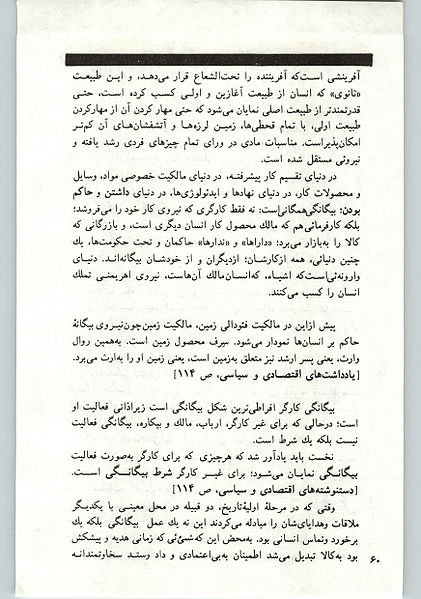 آفرینشی است‌که آفریننده را تحت‌الشعاع قرار می‌دهد، و این طبیعت
«ثانوی» که انسان از طبیعت آغازین و اولی کسب کرده است، حتی
قدرتمندتر از طبیعت اصلی نمایان می‌شود که حتی مهار کردن آن از مهارکردن
طبیعت اولی، با تمام قحطی‌ها، زمین لرزه‌ها و آتشفشان‌های آن کم‌تر
امکان‌پذیراست. مناسبات مادی در ورای تمام چیزهای فردی رشد یافته و
نیروئی مستقل شده است.
در دنیای تقسیم کار پیشرفته، در دنیای مالکیت خصوصی مواد، وسایل
و محصولات کار، در دنیای نهادها و ایدئولوژی‌ها، در دنیای داشتن و حاکم
بودن؛ بیگانگی‌همگانی‌است: نه فقط کارگری که نیروی کار خود را می‌فروشد؛
بلکه کارفرمائی‌هم که مالك محصول کار انسان دیگری است، و بازرگانی که
کالا را به‌بازار می‌برد؛ «داراها» و «ندارها» حاکمان و تحت حکومت‌ها، یك
چنین دنیائی، همه ازکارشان؛ ازدیگران و از خودشان بیگانه‌اند. دنیای
وارونه‌ئی‌است‌که اشیاء، که‌انسان‌مالك آن‌هاست، نیروی اهریمنی تملك
انسان را کسب می‌کنند.
پیش ازاین در مالکیت فئودالی زمین، مالکیت زمین‌چون‌نیروی بیگانهٔ
حاکم بر انسان‌ها نمودار می‌شود. سرف محصول زمین است. به‌همین روال
وارث، یعنی پسر ارشد نیز متعلق به‌زمین است، یعنی زمین او را به‌ارث می‌برد.
[یادداشت‌های اقتصادی و سیاسی، ص ۱۱۴]
بیگانگی کارگر افراطی‌ترین شکل بیگانگی است زیراذاتی فعالیت او
است؛ درحالی که برای غیر کارگر، ارباب، مالك و بیکاره، بیگانگی فعالیت
نیست بلکه یك شرط است.
نخست باید یادآور شد که هرچیزی که برای کارگر به‌صورت فعالیت
بیگانگی نمایان می‌شود؛ برای غیر کارگر شرط بیگانگی است.
[دستنوشته‌های اقتصادی و سیاسی، ص ۱۱۴]
وقتی که در مرحلهٔ اولیهٔ‌تاریخ، دو قبیله در محل معینی با یکدیگر
ملاقات وهدایای‌شان را مبادله می‌کردند این نه یك عمل بیگانگی بلکه یك
برخورد وتماس انسانی بود. به‌محض این که‌شئ‌ئی که زمانی هدیه و پیشکش
بود به‌کالا تبدیل می‌شد اطمینان به‌بی‌اعتمادی و داد وستد سخاوتمندانه
۶۰